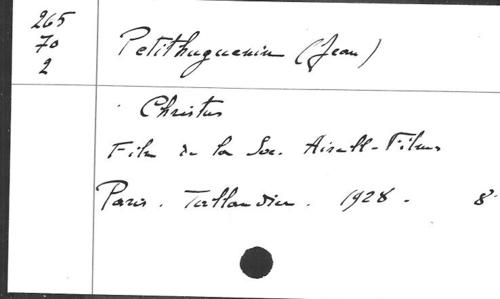 265
70
2
Petithuguenin (Jean)
Christus
Film de la Soc. Airell-Films
Paris. Tallandier. 1928. 8°